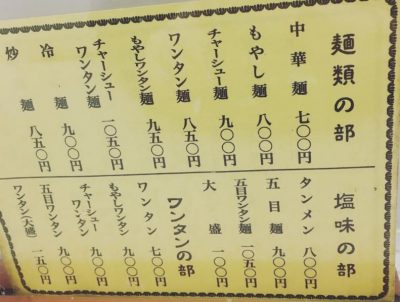 麺類の部
中華麺 七〇〇円
もやし麺 八〇〇円
チャーシュー麺 九〇〇円
ワンタン麺 八五〇円
もやしワンタン麺 九五〇円
チャーシューワンタン麺 一〇五〇円
冷麺 九〇〇円
炒麺 八五〇円
塩味の部
タンメン 八〇〇円
五目麺 九〇〇円
五目ワンタン麺 一〇五〇円
大盛 一〇〇円
ワンタンの部
ワンタン 七〇〇円
もやしワンタン 九〇〇円
チャーシューワンタン 九〇〇円
五目ワンタン 九〇〇円
ワンタン(大盛) 一五〇円